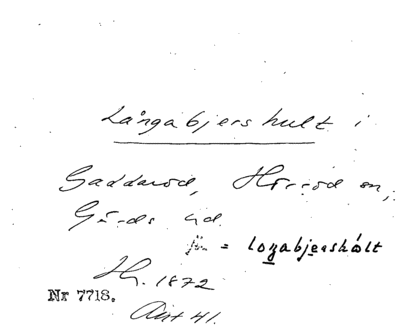 Långabjershult i
Gaddaröd, Hörröd sn,
Gärds hd.
= loŋabjersholt
Hn. 1872
Nr 7718.
Ant 41.